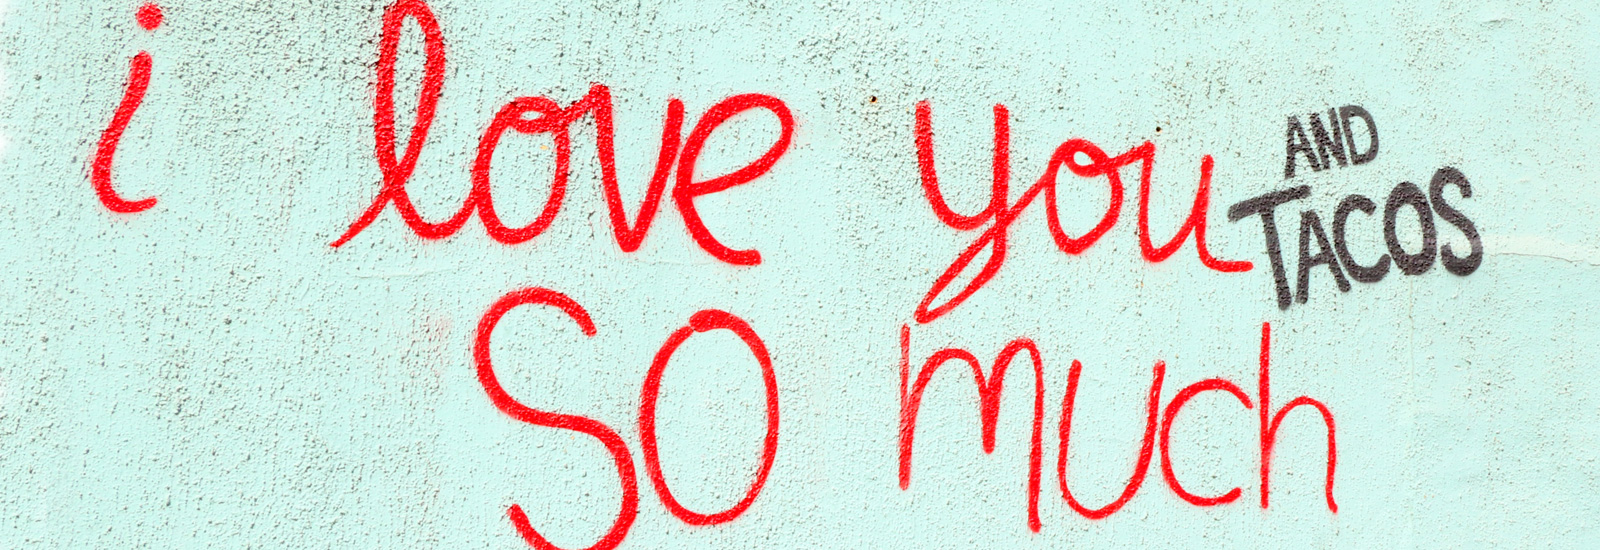 i love you AND
TACOS
so much